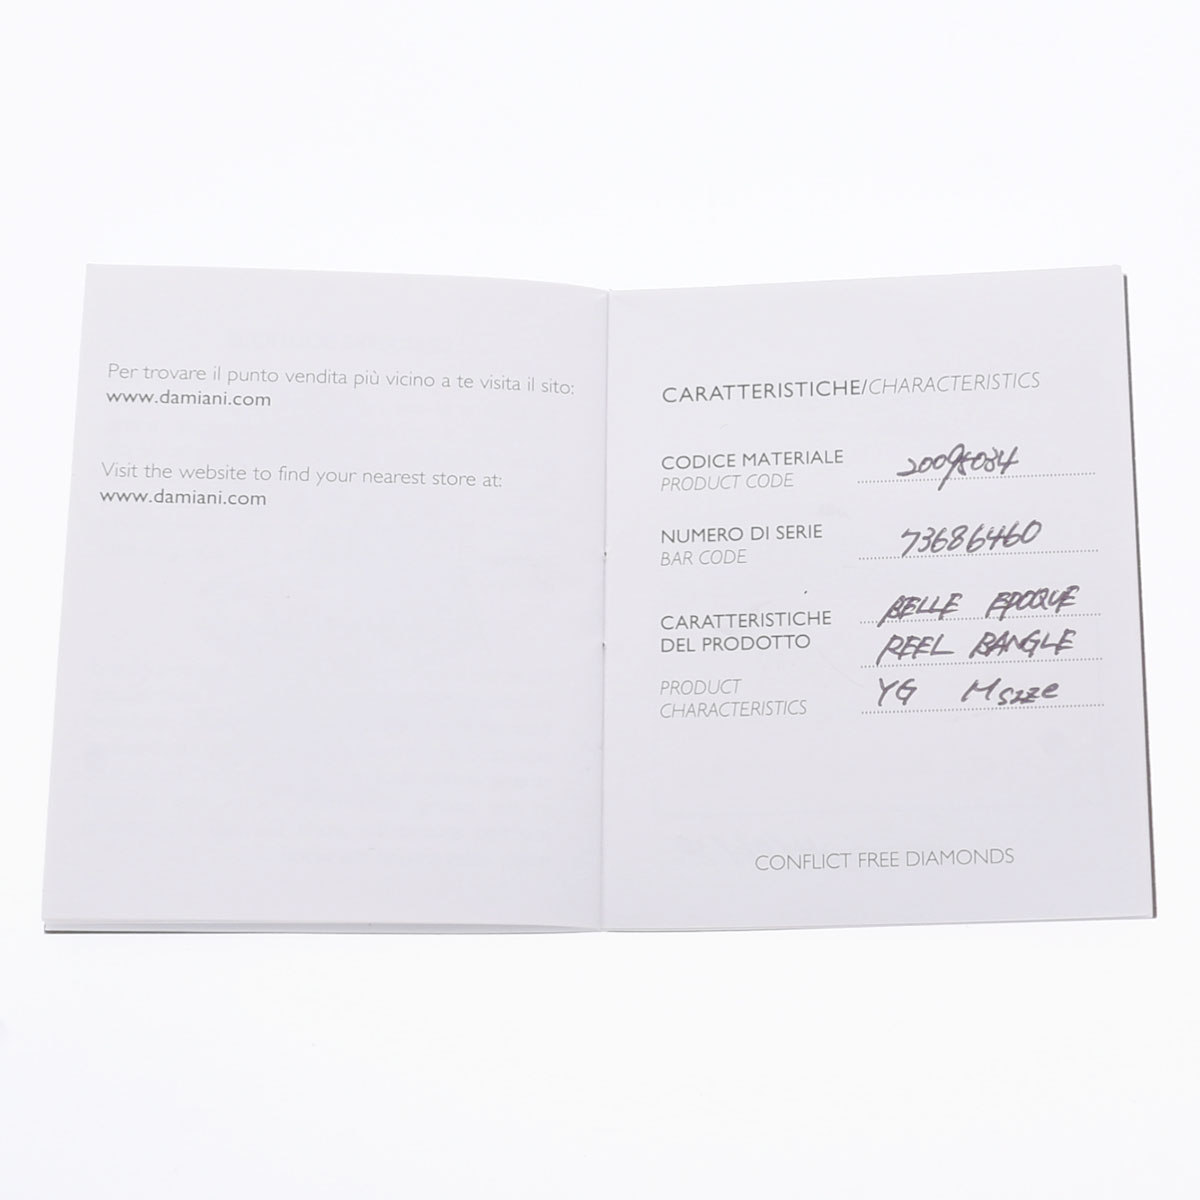 Per trovare il punto vendita più vicino a te visita il sito:
www.damiani.com
Visit the website to find your nearest store at:
www.damiani.com
CARATTERISTICHE/CHARACTERISTICS
CODICE MATERIALE
PRODUCT CODE
NUMERO DI SERIE 73686460
BAR CODE
CARATTERISTICHE BELLE EPOQUE
DEL PRODOTTO REEL BANGLE
PRODUCT YG M size
CHARACTERISTICS
CONFLICT FREE DIAMONDS